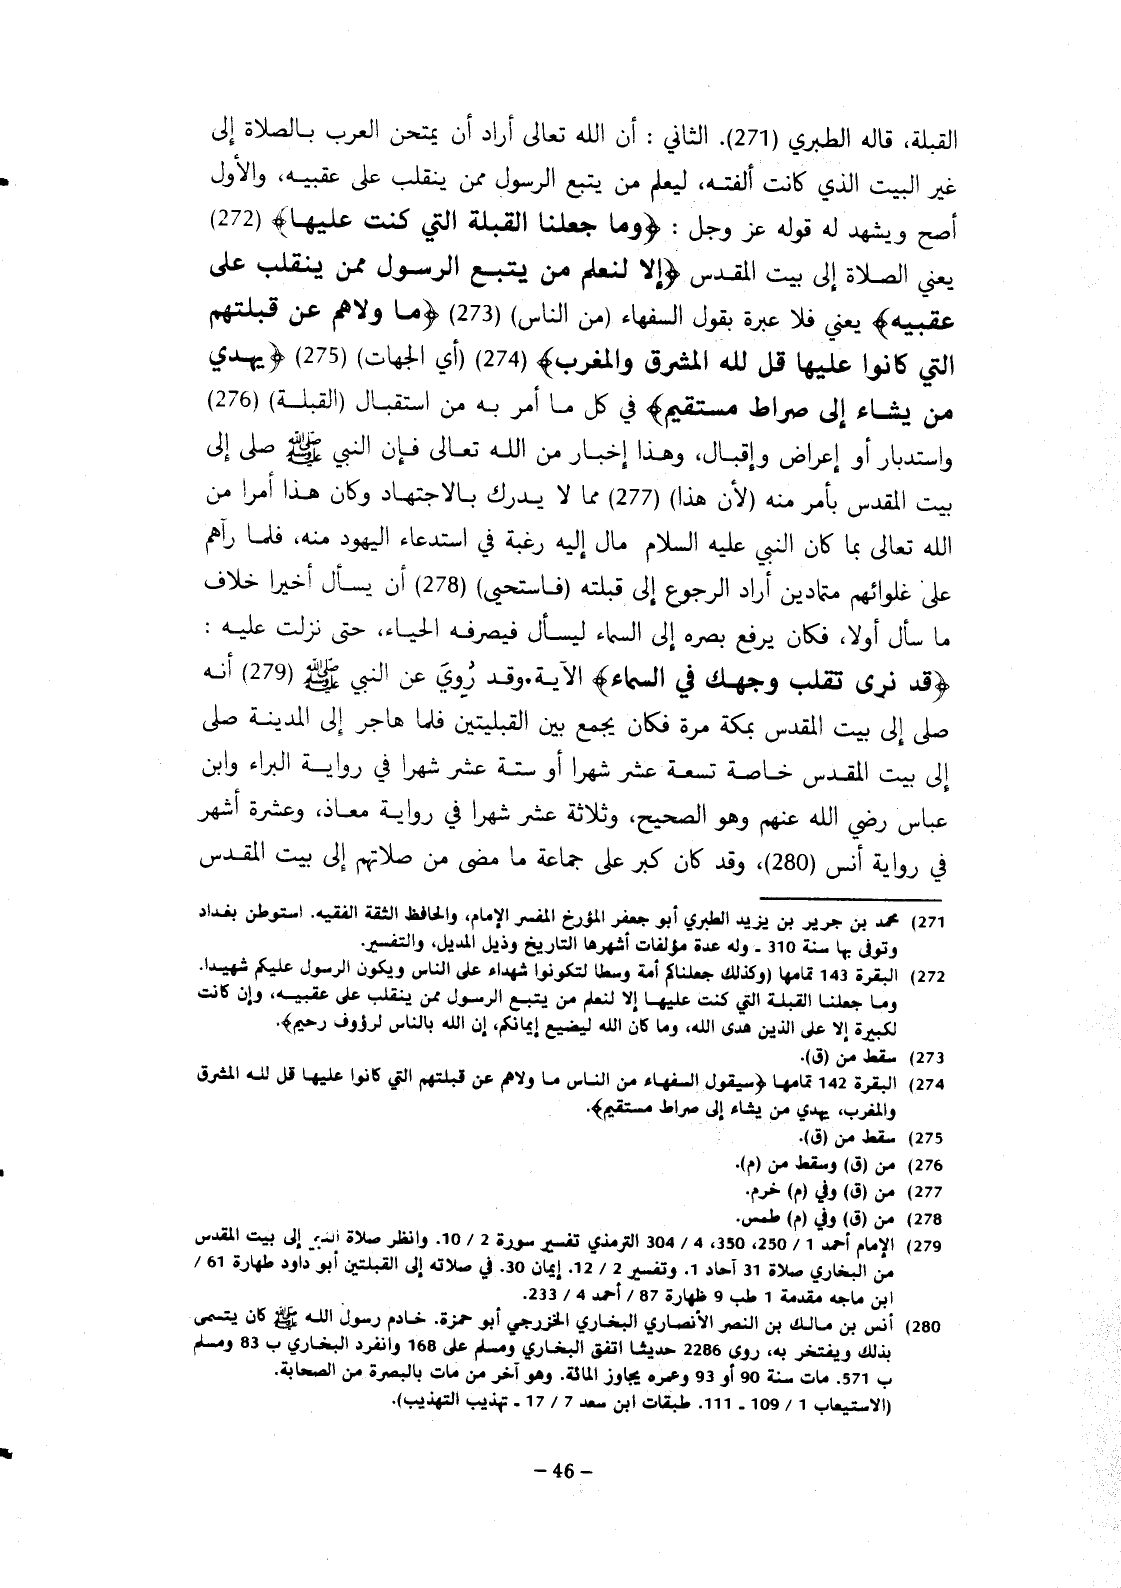 القبلة، قاله الطبري (271). الثاني : أن الله تعالى أراد أن يمتحن العرب بالصلاة إلى
غير البيت الذي كانت ألفته، ليعلم من يتبع الرسول ممن ينقلب على عقبيه، والأول
أصح ويشهد له قوله عز وجل : ﴿وما جعلنا القبلة التي كنت عليها﴾ (272)
يعني الصلاة إلى بيت المقدس ﴿إلا لنعلم من يتبع الرسول ممن ينقلب على
عقبيه﴾ يعني فلا عبرة بقول السفهاء (من الناس) (273) ﴿ما ولاهم عن قبلتهم
التي كانوا عليها قل لله المشرق والمغرب﴾ (274) (أي الجهات) (275) ﴿يهدي
من يشاء إلى صراط مستقيم﴾ في كل ما أمر به من استقبال (القبلة) (276)
واستدبار أو إعراض وإقبال، وهذا إخبار من الله تعالى فإن النبي ﷺ صلى إلى
بيت المقدس بأمر منه (لأن هذا) (277) مما لا يدرك بالاجتهاد وكان هذا أمرا من
الله تعالى بما كان النبي عليه السلام مال إليه رغبة في استدعاء اليهود منه، فلما رآهم
على غلوائهم متمادين أراد الرجوع إلى قبلته (فاستحيى) (278) أن يسأل أخيرا خلاف
ما سأل أولا، فكان يرفع بصره إلى السماء ليسأل فيصرفه الحياء، حتى نزلت عليه :
﴿قد نرى تقلب وجهك في السماء﴾ الآية. وقد رُوِيَ عن النبي ﷺ (279) أنه
صلى إلى بيت المقدس بمكة مرة فكان يجمع بين القبلتين فلما هاجر إلى المدينة صلى
إلى بيت المقدس خاصة تسعة عشر شهرا أو ستة عشر شهرا في رواية البراء وابن
عباس رضي الله عنهم وهو الصحيح، وثلاثة عشر شهرا في رواية معاذ، وعشرة أشهر
في رواية أنس (280)، وقد كان كبر على جماعة ما مضى من صلاتهم إلى بيت المقدس
271) محمد بن جرير بن يزيد الطبري أبو جعفر المؤرخ المفسر الإمام، والحافظ الثقة الفقيه. استوطن بغداد
وتوفى بها سنة 310 ـ وله عدة مؤلفات أشهرها التاريخ وذيل المديل، والتفسير.
272) البقرة 143 تمامها (وكذلك جعلناكم أمة وسطا لتكونوا شهداء على الناس ويكون الرسول عليكم شهيدا.
وما جعلنا القبلة التي كنت عليها إلا لنعلم من يتبع الرسول ممن ينقلب على عقبيه، وإن كانت
لكبيرة إلا على الذين هدى الله، وما كان الله ليضيع إيمانكم، إن الله بالناس لرؤوف رحيم﴾.
273) سقط من (ق).
274) البقرة 142 تمامها ﴿سيقول السفهاء من الناس ما ولاهم عن قبلتهم التي كانوا عليها قل لله المشرق
والمغرب، يهدي من يشاء إلى صراط مستقيم﴾.
275) سقط من (ق).
276) من (ق) وسقط من (م).
277) من (ق) وفي (م) خرم.
278) من (ق) وفي (م) طمس.
279) الإمام أحمد 1 / 250، 350، 4 / 304 الترمذي تفسير سورة 2 / 10. وانظر صلاة النبي إلى بيت المقدس
من البخاري صلاة 31 آحاد 1. وتفسير 2 / 12. إيمان 30. في صلاته إلى القبلتين أبو داود طهارة 61 /
ابن ماجه مقدمة 1 طب 9 طهارة 87 / أحمد 4 / 233.
280) أنس بن مالك بن النصر الأنصاري البخاري الخزرجي أبو حمزة. خادم رسول الله ﷺ كان يتسمى
بذلك ويفتخر به، روى 2286 حديثا اتفق البخاري ومسلم على 168 وانفرد البخاري ب 83 ومسلم
ب 571. مات سنة 90 أو 93 وعمره يجاوز المائة. وهو آخر من مات بالبصرة من الصحابة.
(الاستيعاب 1 / 109 ـ 111. طبقات ابن سعد 7 / 17 ـ تهذيب التهذيب).
– 46 –